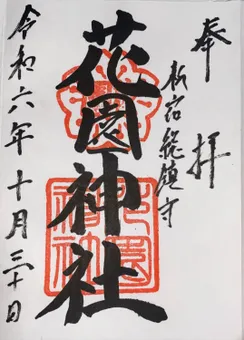 奉拝
新宿総鎮守
花園神社
令和六年十月三十日
花園神社